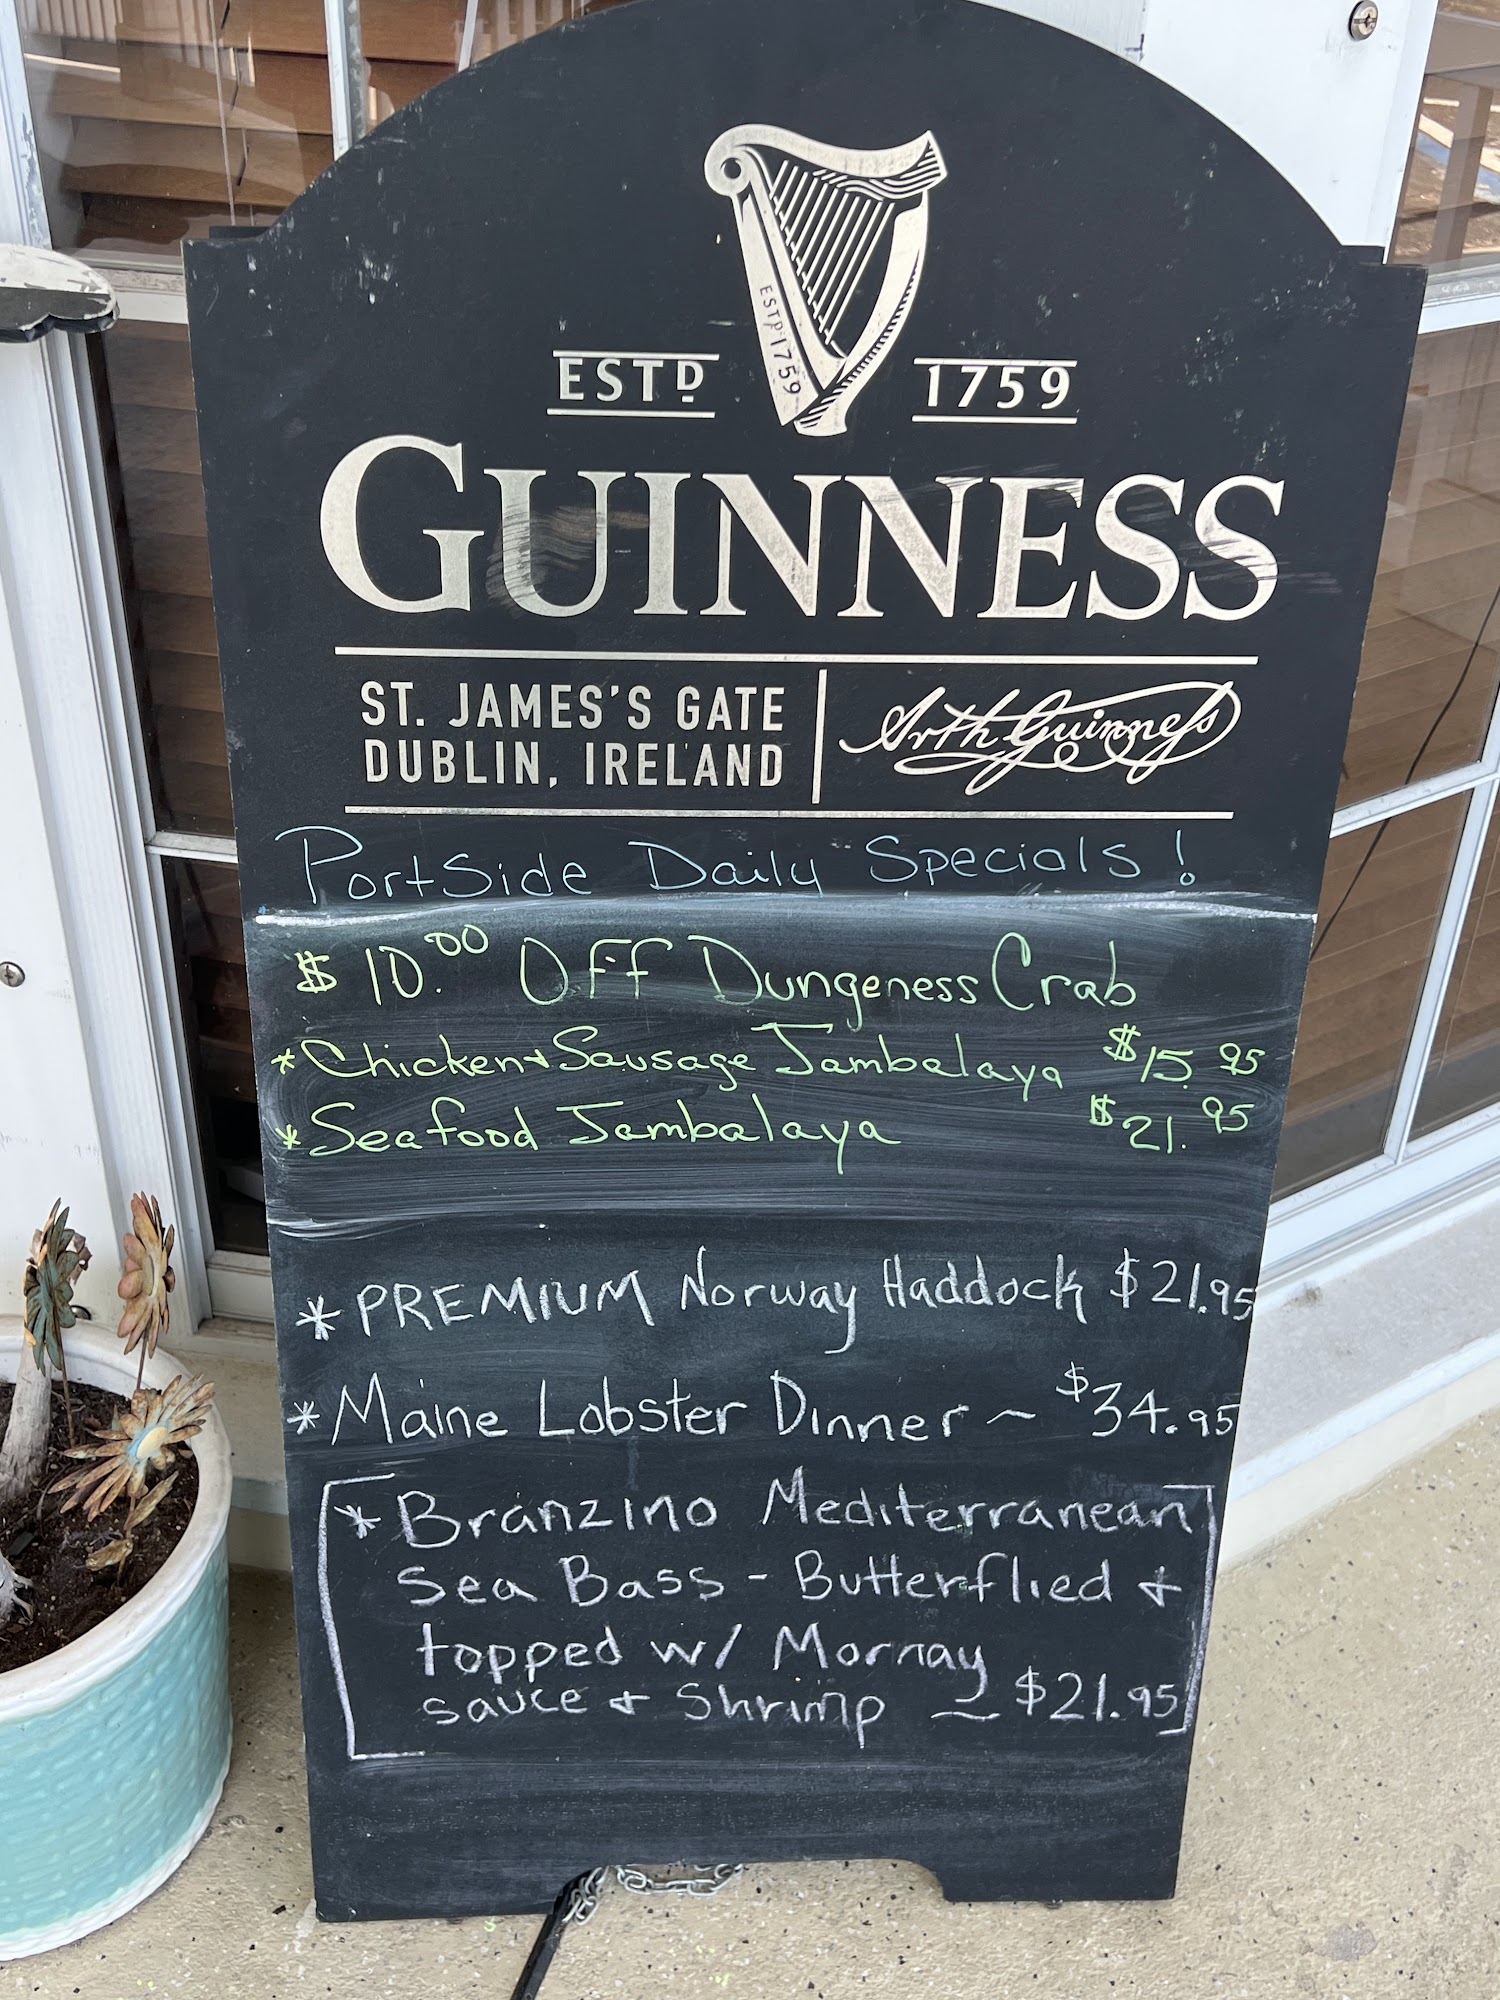 ESTD 1759
ESTD 1759
GUINNESS
ST. JAMES'S GATE
DUBLIN, IRELAND
Arth Guinness
PortSide Daily Specials!
$10.00 Off Dungeness Crab
*Chicken + Sausage Jambalaya $15.95
*Seafood Jambalaya $21.95
*PREMIUM Norway Haddock $21.95
*Maine Lobster Dinner ~ $34.95
*Branzino Mediterranean
Sea Bass - Butterflied +
topped w/ Mornay
sauce + Shrimp ~ $21.95